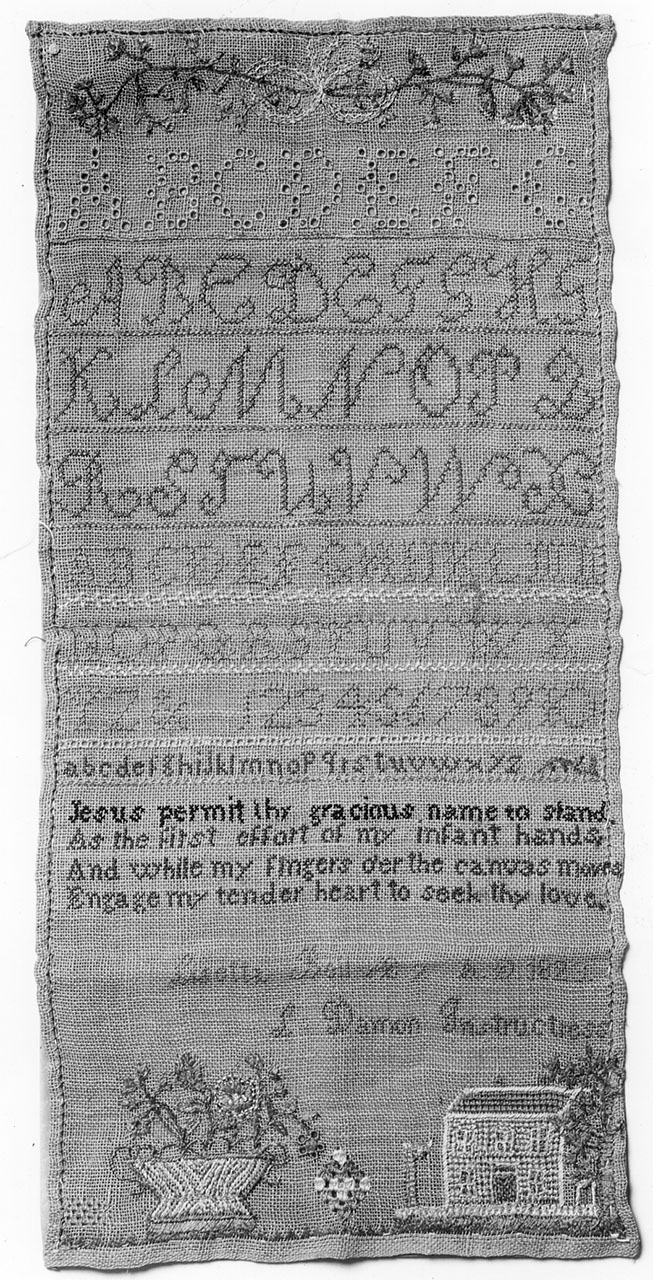 A B C D E F G
A B C D E F G H I
K L M N O P Q
R S T U V W X
A B C D E F G H I J K L M
N O P Q R S T U V W X
Y Z & 1 2 3 4 5 6 7 8 9 10
a b c d e f g h i j k l m n o p q r s t u v w x y z
Jesus permit thy gracious name to stand,
As the first effort of my infant hands,
And while my fingers o'er the canvas move,
Engage my tender heart to seek thy love.
A D
L Damon Instructress